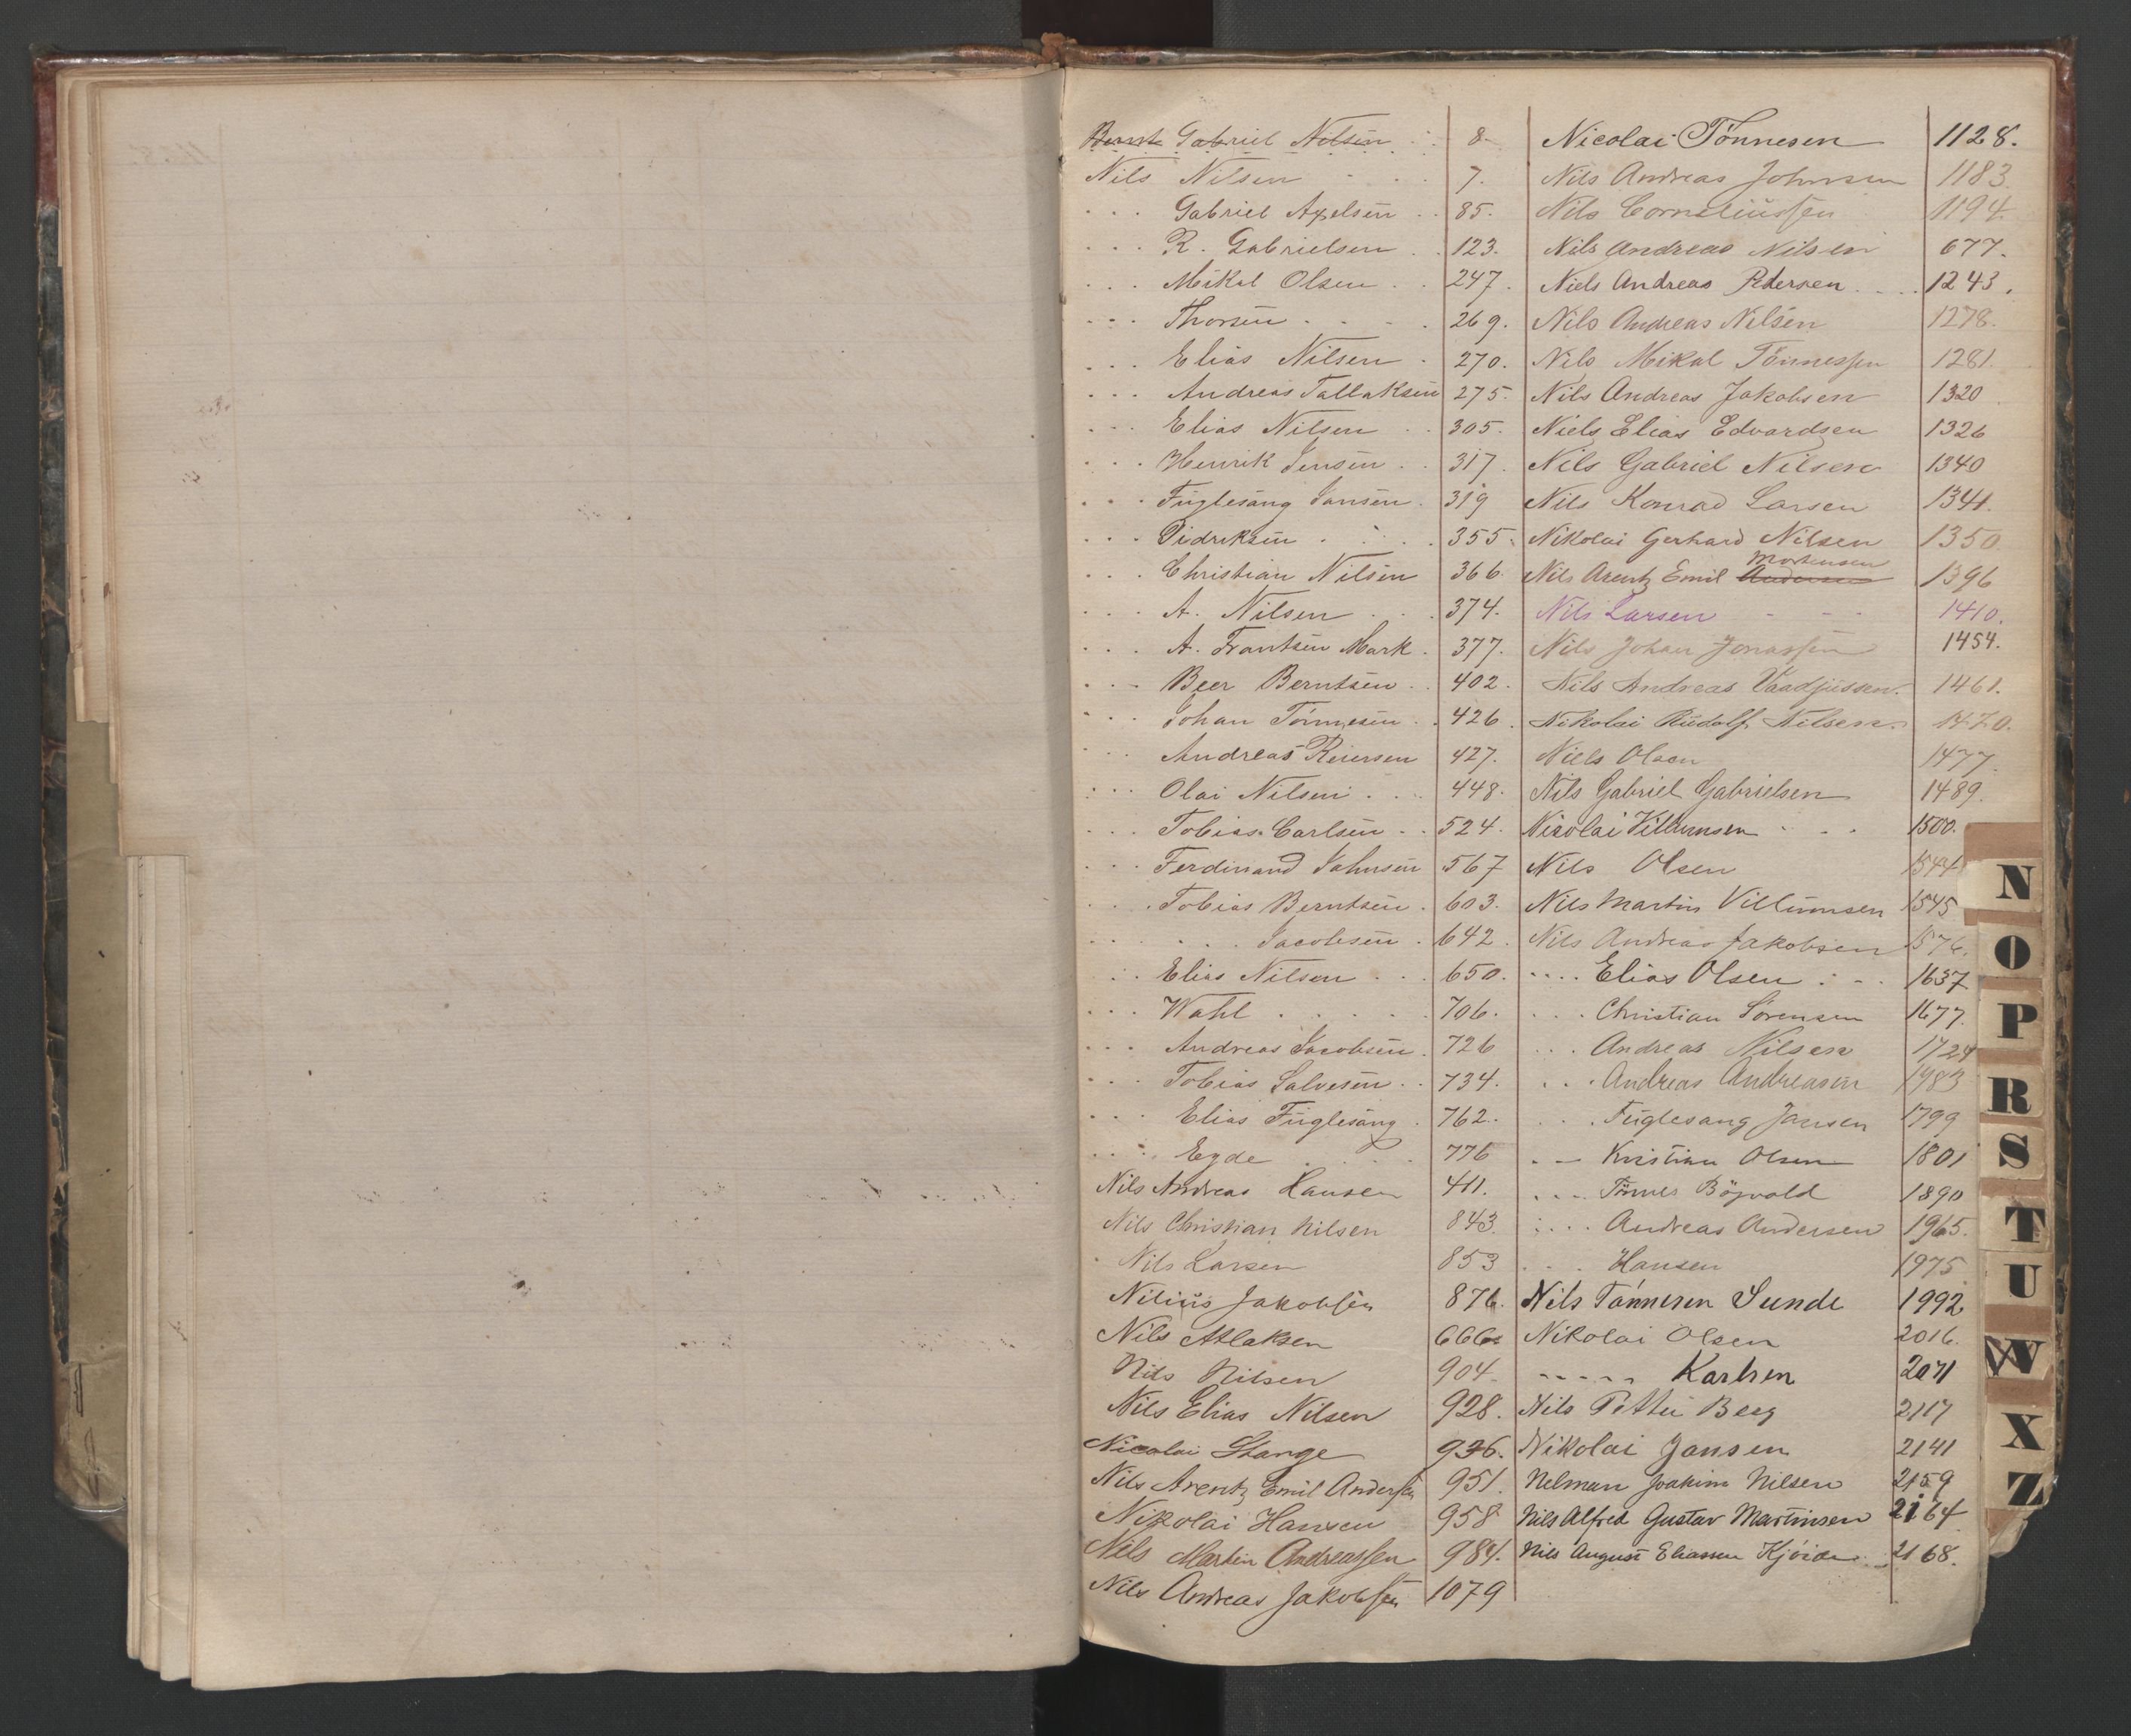 Bernt Gabriel Nilsen . . 8
Nils Nilsen . . . 7.
. . . Gabriel Axelsen . . 85.
. . . R. Gabrielsen . . 123.
. . . Mikal Olsen . . 247.
. . . Thorsen . . . . 269.
. . . Elias Nilsen . 270.
. . . Andreas Tallaksen 275.
. . . Elias Nilsen . . 305.
. . . Henrik Jensen . . 317.
. . . Fuglesang Jansen . 319
. . . Didriksen . . . . 355.
. . . Christian Nilsen 366.
. . . A. Nilsen . . . 374.
. . . A. Frantsen Mark . 377.
. . . Beer Berntsen . . 402.
. . . Johan Tönnesen . . 426.
. . . Andreas Reiersen 427.
. . . Olai Nilsen . . . 448.
. . . Tobias Carlsen . . 524.
. . . Ferdinand Johnsen 567
. . . Tobias Berntsen . 603.
. . . . . . Jacobsen . 642.
. . . Elias Nilsen . . . 650.
. . . Wahl . . . . . 706.
. . . Andreas Jacobsen . 726
. . . Tobias Salvesen . . 734.
. . . Elias Fuglesang . 762.
. . . Egde . . . . 776
Nils Andreas Hansen 411.
Nils Christian Nilsen 843.
Nils Larsen 853
Nilius Jakobsen 876.
Nils Atlaksen 666
Nils Nilsen 904.
Nils Elias Nilsen 928.
Nicolai Stange 936.
Nils Arentz Emil Andersen 951.
Nikolai Hansen 958
Nils Martin Andreassen 984.
Nils Andreas Jakobsen 1079
Nicolai Tönnesen 1128.
Nils Andreas Johnsen 1183.
Nils Corneliussen 1194.
Nils Andreas Nilsen 677.
Niels Andreas Pedersen . . . . 1243.
Nils Andreas Nilsen 1278.
Nils Mikal Tönnessen 1281.
Nils Andreas Jakobsen 1320
Niels Elias Edvardsen 1326
Nils Gabriel Nilsen 1340
Nils Konrad Larsen 1341.
Nikolai Gerhard Nilsen 1350
Mortensen
Nils Arentz Emil Andersen 1396
Nils Larsen - - - 1410.
Nils Johan Jonassen 1454.
Nils Andreas Vaadjussen. 1461.
Nikolai Rudolf Nilsen. 1470.
Niels Olsen 1477.
Nils Gabriel Gabrielsen 1489.
Nicolai Villumsen . . . 1500.
Nils Olsen 1544
Nils Martin Villumsen 1545
Nils Andreas Jakobsen 1576.
. . . . Elias Olsen . . . 1637
. . . Christian Sörensen 1677.
. . . Andreas Nilsen 1724
. . . Andreas Andreasen 1783
. . . Fuglesang Jansen 1799
. . . Kristian Olsen 1801
. . . . Tönnes Bögvald 1890
. . . . Andreas Andersen 1965.
. . . Hansen 1975
Nils Tönnesen Sunde 1992
Nikolai Olsen 2016.
- - - - - Karlsen 2071
Nils Petter Berg 2117
Nikolai Jansen 2141
Nelman Joakim Nilsen 2159
Nils Alfred Gustav Martinsen 2164
Nils August Eliassen Kjöide 2168.
N
O
P
R
S
T
U
W
X
Z